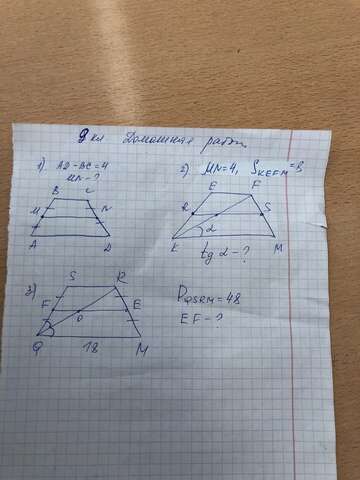 9 кл Домашняя работа
1) AD-BC=4
MN-?
2) MN=4, SKEFM=8
B C
M N
A D
E F
R S
α
K M
tg α-?
3)
S R
F E
O
Q 18 M
PQSRM=48
EF-?